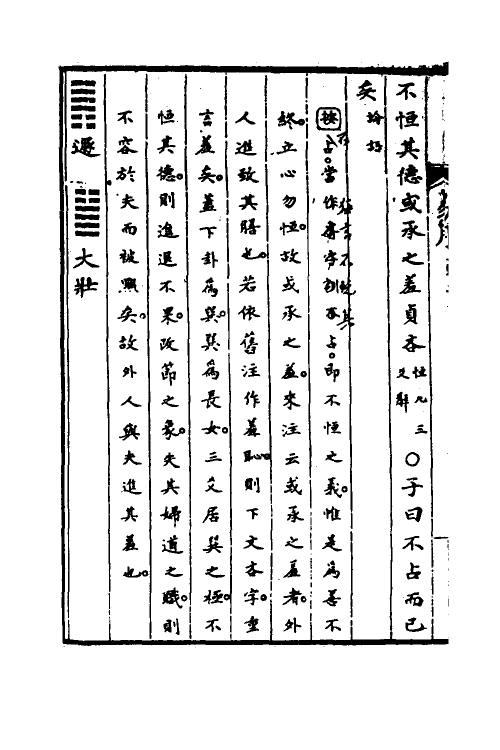 不恒其德或承之羞貞吝恒九三爻辭○子曰不占而已
矣
按占當作
終立心勿恒故或承之羞來注云或承之羞者外
人進致其膳也若依舊注作羞恥則下文吝字重
言羞矣蓋下卦為巽巽為長女三爻居巽之極不
恒其德則進退不果改節之象失其婦道之職則
不容於夫而被黜矣故外人與夫進其羞也
䷠遯 ䷡大壯